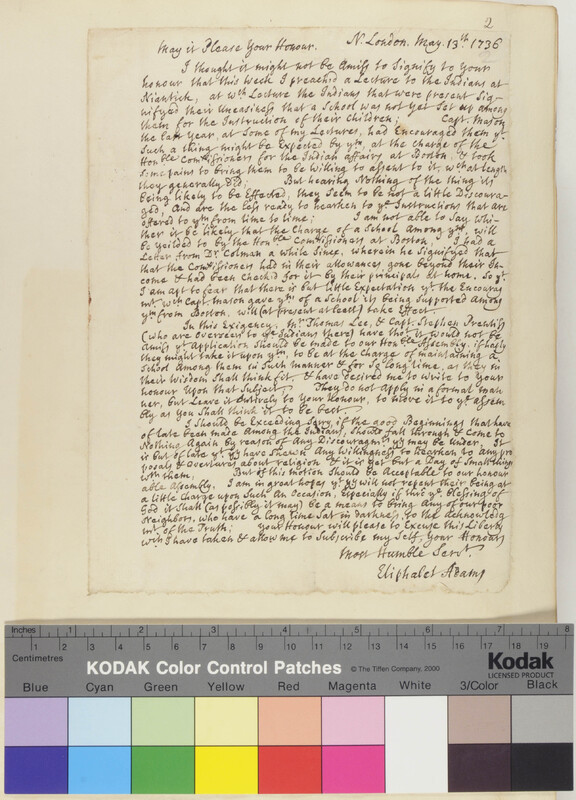 2
May it Please Your Honour. N. London. May. 13th 1736
I thought it might not be Amiss to Signify to Your
honour that this week I preached a Lecture to the Indians at
Niantick, at wch Lecture the Indians that were present Sig-
nifyed their Uneasiness that a School was not yet Set up among
them for the Instruction of their Children; Capt. Mason
the last Year, at Some of my Lectures, had Encouraged them yt
Such a thing might be Expected by ym, at the charge of the
Honble Commissioners for the Indian affairs at Boston, & took
some pains to bring them to be willing to assent to it, wch at length
they generally did; But hearing Nothing of the thing its
being likely to be Effected, they Seem to be not a little Discoura-
ged, And are the less ready to hearken to ye Instructions that are
offered to ym from time to time; I am not able to Say whe-
ther it be likely that the Charge of a School Among ym, will
be yeilded to by the Honble Commissioners at Boston, I had a
Letter from Dr Colman a while Since, wherein he Signifyed that
that the Commissioners had in their allowances gone beyond their In-
come & had been Checkd for it by their principals at home, So yt
I am apt to fear that there is but little Expectation yt the Encourage-
mt wch Capt. Mason gave ym of a School its being Supported Among
ym from Boston, will (at present at least) take Effect.
In this Exigency, Mr Thomas Lee, & Capt. Stephen Prentiss
(who are Overseers to ye Indians there) have thot it would not be
Amiss yt Application Should be made to our Honble Assembly, if haply
they might take it upon ym, to be at the Charge of maintaining a
School Among them in Such manner & for So long time, as they in
their Wisdom Shall think fit, & have desired me to write to Your
honour Upon that Subject. They do not apply in a formal man-
ner, but Leave it Entirely to Your Honour, to move it to ye Assem-
bly as You Shall think it to be best.
I Should be Exceeding Sorry, if the good Beginnings that have
of late been made Among the Indians, Should fall through & Come to
Nothing Again by reason of Any Discouragmt yy may be under, It
is but of late yt yy have Shewn Any Willingness to hearken to Any pro-
posals & Overtures about religion & it is yet but a Day of Small things
wth them, But if this motion Should be Acceptable to our honour-
able Assembly, I am in great hopes yt yy will not repent their being at
a little Charge upon Such An Occasion, Especially if thro' ye blessing of
God it Shall (as possibly it may) be a means to bring Any of our poor
Neighbors, who have a long time Sat in darkness, to the Acknowledg-
mt of the Truth; Your Honour will please to Excuse this Liberty
wch I have taken & allow me to Subscribe my Self, Your Honours
Most Humble Servt.
Eliphalet Adams
Inches 1 2 3 4 5 6 7 8
Centimetres 1 2 3 4 5 6 7 8 9 10 11 12 13 14 15 16 17 18 19
KODAK Color Control Patches © The Tiffen Company, 2000 Kodak
LICENSED PRODUCT
Blue Cyan Green Yellow Red Magenta White 3/Color Black